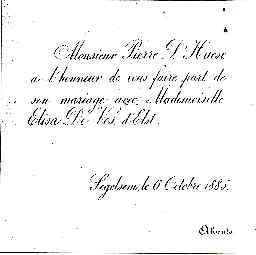 Monsieur Pierre D'Huese
a l'honneur de vous faire part de
son mariage avec Mademoiselle
Elisa De Vos, d'Elst.
Segelsem, le 6 Octobre 1885.
Absents